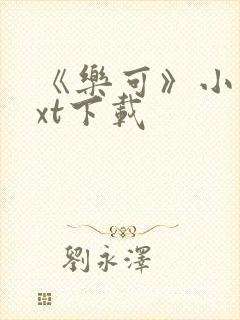 《樂可》小
xt下載
劉永澤